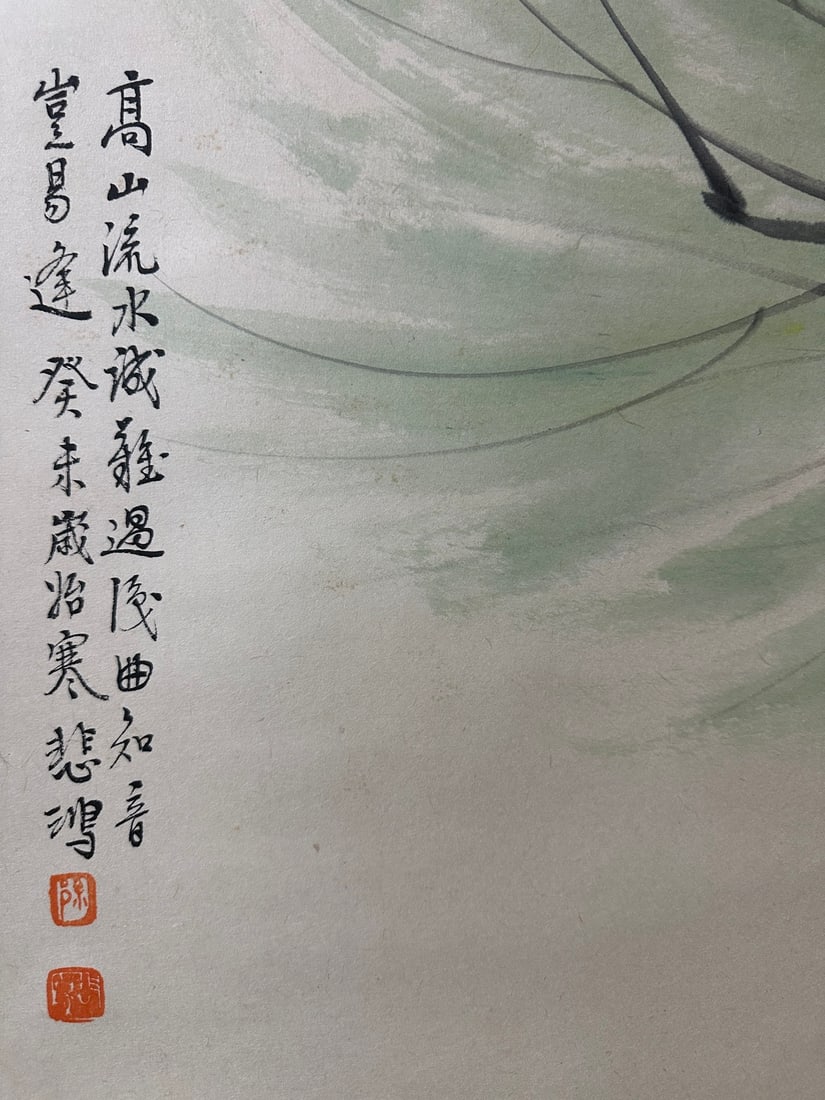 高山流水誠難遇後曲知音
豈易逢 癸未歲始寒 悲鴻